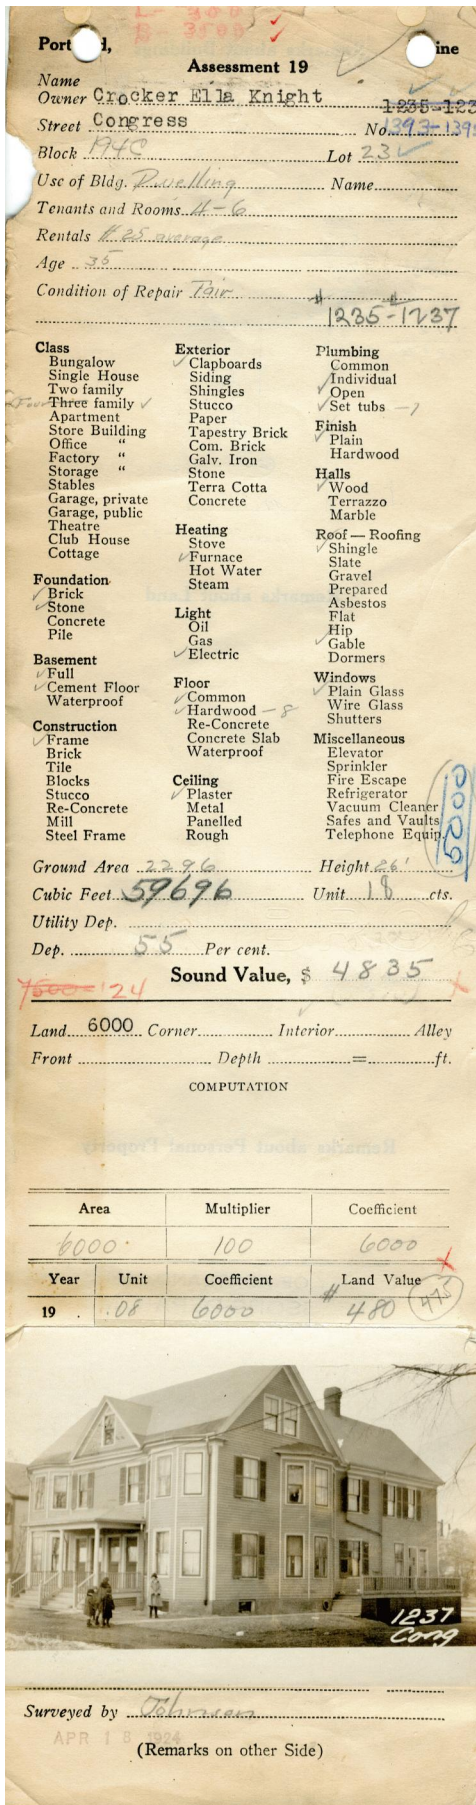 L- 500
B- 3500
Port d, ine
Assessment 19
Name
Owner Crocker Ella Knight 1235-123
Street Congress No. 1393-139
Block 194C Lot 23
Use of Bldg. Dwelling Name
Tenants and Rooms 4-6
Rentals # 25 average
Age 35
Condition of Repair Fair
1235-1237
Class
Bungalow
Single House
Two family
Four Three family
Apartment
Store Building
Office "
Factory "
Storage "
Stables
Garage, private
Garage, public
Theatre
Club House
Cottage
Foundation
Brick
Stone
Concrete
Pile
Basement
Full
Cement Floor
Waterproof
Construction
Frame
Brick
Tile
Blocks
Stucco
Re-Concrete
Mill
Steel Frame
Exterior
Clapboards
Siding
Shingles
Stucco
Paper
Tapestry Brick
Com. Brick
Galv. Iron
Stone
Terra Cotta
Concrete
Heating
Stove
Furnace
Hot Water
Steam
Light
Oil
Gas
Electric
Floor
Common
Hardwood - 8
Re-Concrete
Concrete Slab
Waterproof
Ceiling
Plaster
Metal
Panelled
Rough
Plumbing
Common
Individual
Open
Set tubs - 7
Finish
Plain
Hardwood
Halls
Wood
Terrazzo
Marble
Roof — Roofing
Shingle
Slate
Gravel
Prepared
Asbestos
Flat
Hip
Gable
Dormers
Windows
Plain Glass
Wire Glass
Shutters
Miscellaneous
Elevator
Sprinkler
Fire Escape
Refrigerator
Vacuum Cleaner
Safes and Vaults
Telephone Equip.
Ground Area 2296 Height 26'
Cubic Feet 59696 Unit 18 cts.
Utility Dep.
Dep. 55 Per cent.
Sound Value, $ 4835
Land 6000 Corner Interior Alley
Front Depth = ft.
COMPUTATION
Area Multiplier Coefficient
6000 100 6000
Year Unit Coefficient Land Value
19 .08 6000 # 480 475
1237
Cong
Surveyed by Johnson
APR 18 1924
(Remarks on other Side)